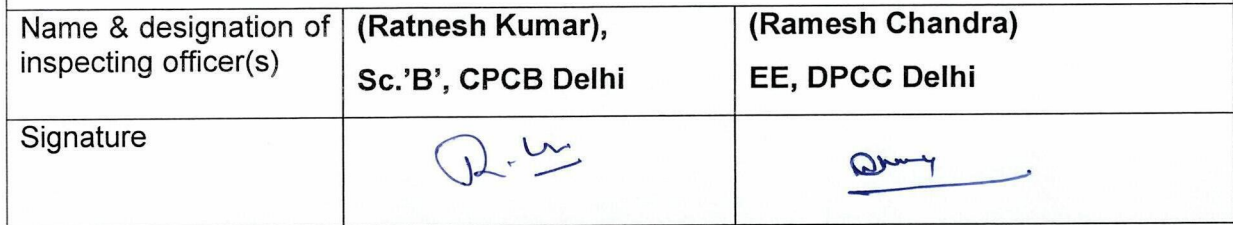 Name & designation of
inspecting officer(s)
(Ratnesh Kumar),
Sc.'B', CPCB Delhi
(Ramesh Chandra)
EE, DPCC Delhi
Signature